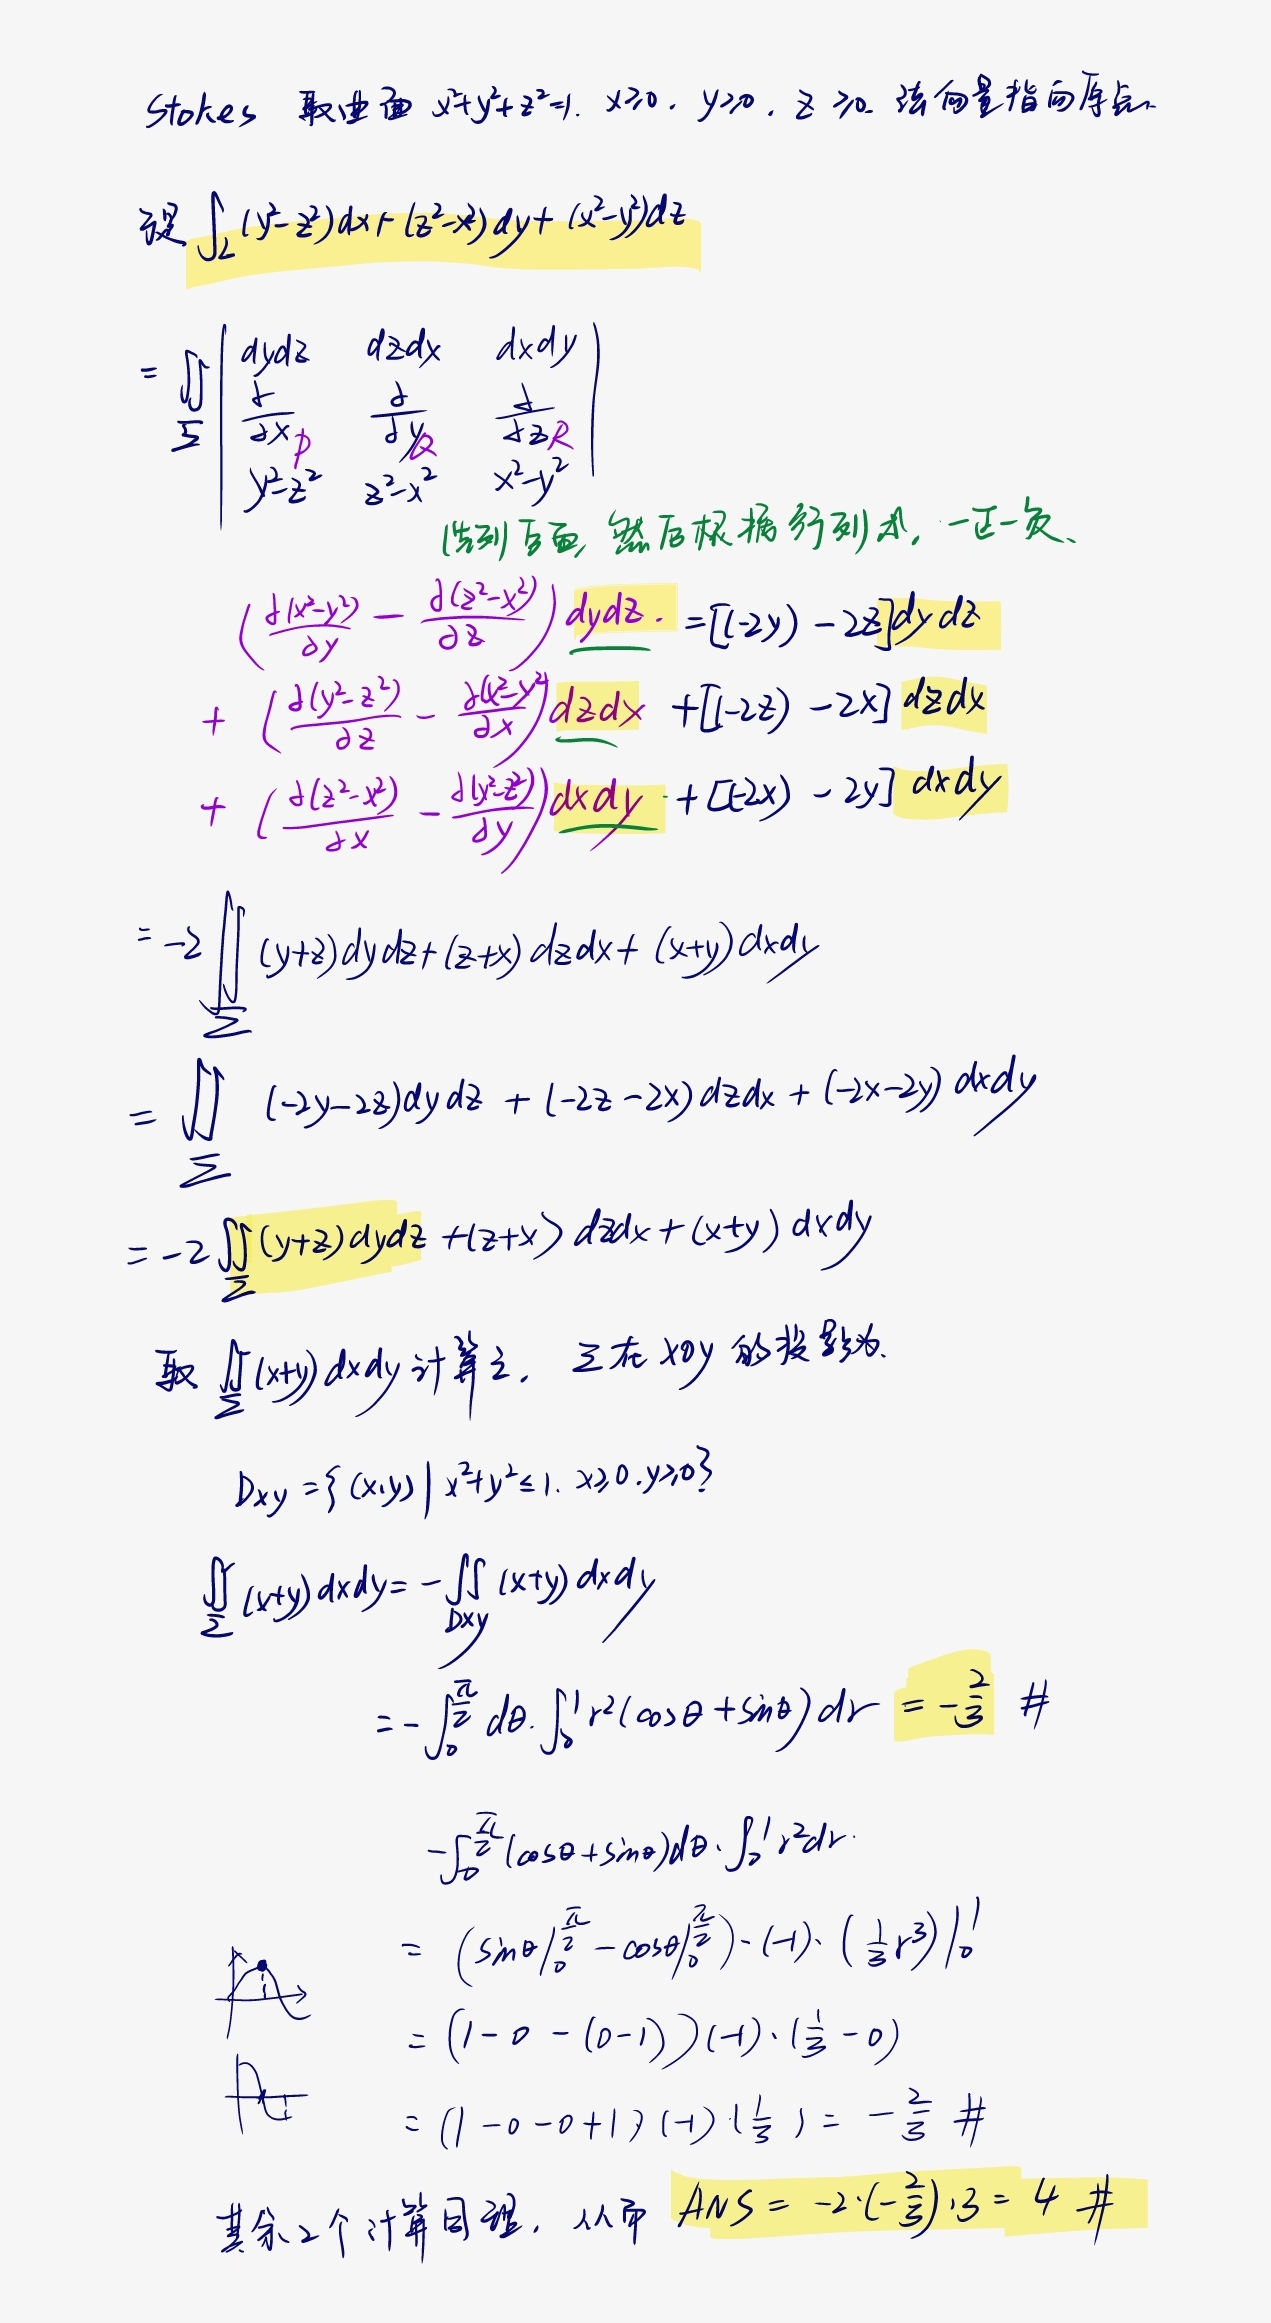 Stokes 取曲面 x²+y²+z²=1. x≥0. y≥0. z≥0 法向量指向原点.
设 ∫_L (y²-z²)dx+(z²-x²)dy+(x²-y²)dz
= ∬_Σ | dydz dzdx dxdy |
∂/∂x ∂/∂y ∂/∂z
P Q R
y²-z² z²-x² x²-y²
然后根据行列式, 一正一负、
(∂(x²-y²)/∂y - ∂(z²-x²)/∂z) dydz. =[(-2y) - 2z]dydz
+ (∂(y²-z²)/∂z - ∂(x²-y²)/∂x) dzdx +[(-2z) - 2x] dzdx
+ (∂(z²-x²)/∂x - ∂(y²-z²)/∂y) dxdy +[(-2x) - 2y] dxdy
= -2 ∬_Σ (y+z)dydz+(z+x)dzdx+(x+y)dxdy
= ∬_Σ (-2y-2z)dydz + (-2z-2x)dzdx + (-2x-2y)dxdy
= -2 ∬_Σ (y+z)dydz +(z+x)dzdx+(x+y)dxdy
取 ∬_Σ (x+y)dxdy 计算之, Σ在 xoy 的投影为.
Dxy ={(x,y)| x²+y²≤1. x≥0.y≥0}
∬_Σ (x+y)dxdy= -∬_Dxy (x+y)dxdy
= -∫_0^(π/2) dθ. ∫_0^1 r²(cosθ+sinθ)dr = -2/3 #
-∫_0^(π/2) (cosθ+sinθ)dθ. ∫_0^1 r²dr.
= (sinθ|_0^(π/2) - cosθ|_0^(π/2))·(-1)·(1/3 r³)|_0^1
= (1-0-(0-1))(-1)·(1/3-0)
= (1-0-0+1)(-1)·(1/3) = -2/3 #
其余2个计算同理, 从而 ANS = -2·(-2/3)·3 = 4 #